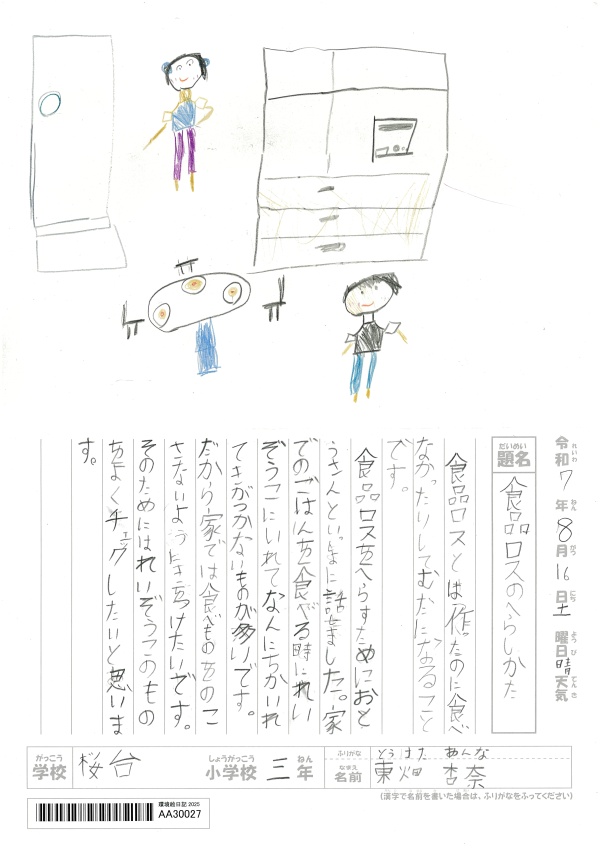 令和7年8月16日土曜日晴天気
れいわ ねん がつ にち ようび てんき
だいめい
題名 食品ロスのへらしかた
食品ロスとは作ったのに食べ
なかったりしてむだになること
です。
食品ロスをへらすためにおと
うさんといっしょに話しました。家
でのごはんを食べる時にれい
ぞうこにいれてなんにちかいれ
てきがつかないものが多いです。
だから家では食べものをのこ
さないように気をつけたいです。
そのためにはれいぞうこのもの
をよくチェックしたいと思いま
す。
がっこう しょうがっこう ねん
学校 桜台 小学校 三年
ふりがな とうはた あんな
なまえ
名前 東畑 杏奈
(漢字で名前を書いた場合は、ふりがなをふってください)
環境絵日記 2025
AA30027